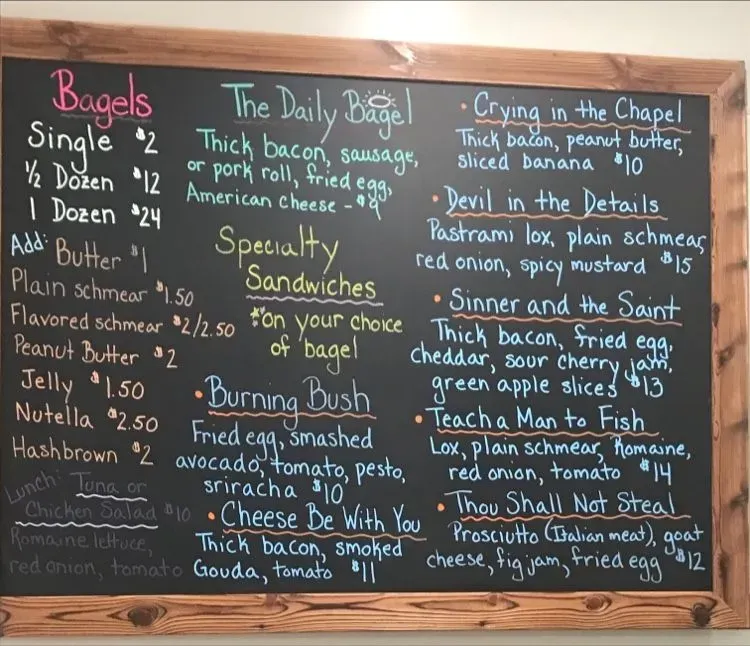 Bagels
Single $2
1/2 Dozen $12
1 Dozen $24
Add: Butter $1
Plain schmear $1.50
Flavored schmear $2/2.50
Peanut Butter $2
Jelly $1.50
Nutella $2.50
Hashbrown $2
Lunch: Tuna or
Chicken Salad $10
Romaine lettuce,
red onion, tomato
The Daily Bagel
Thick bacon, sausage,
or pork roll, fried egg,
American cheese - $9
Specialty
Sandwiches
*on your choice
of bagel
• Burning Bush
Fried egg, smashed
avocado, tomato, pesto,
sriracha $10
• Cheese Be With You
Thick bacon, smoked
Gouda, tomato $11
• Crying in the Chapel
Thick bacon, peanut butter,
sliced banana $10
• Devil in the Details
Pastrami lox, plain schmear,
red onion, spicy mustard $15
• Sinner and the Saint
Thick bacon, fried egg,
cheddar, sour cherry jam,
green apple slices $13
• Teach a Man to Fish
Lox, plain schmear, Romaine,
red onion, tomato $14
• Thou Shall Not Steal
Prosciutto (Italian meat), goat
cheese, fig jam, fried egg $12